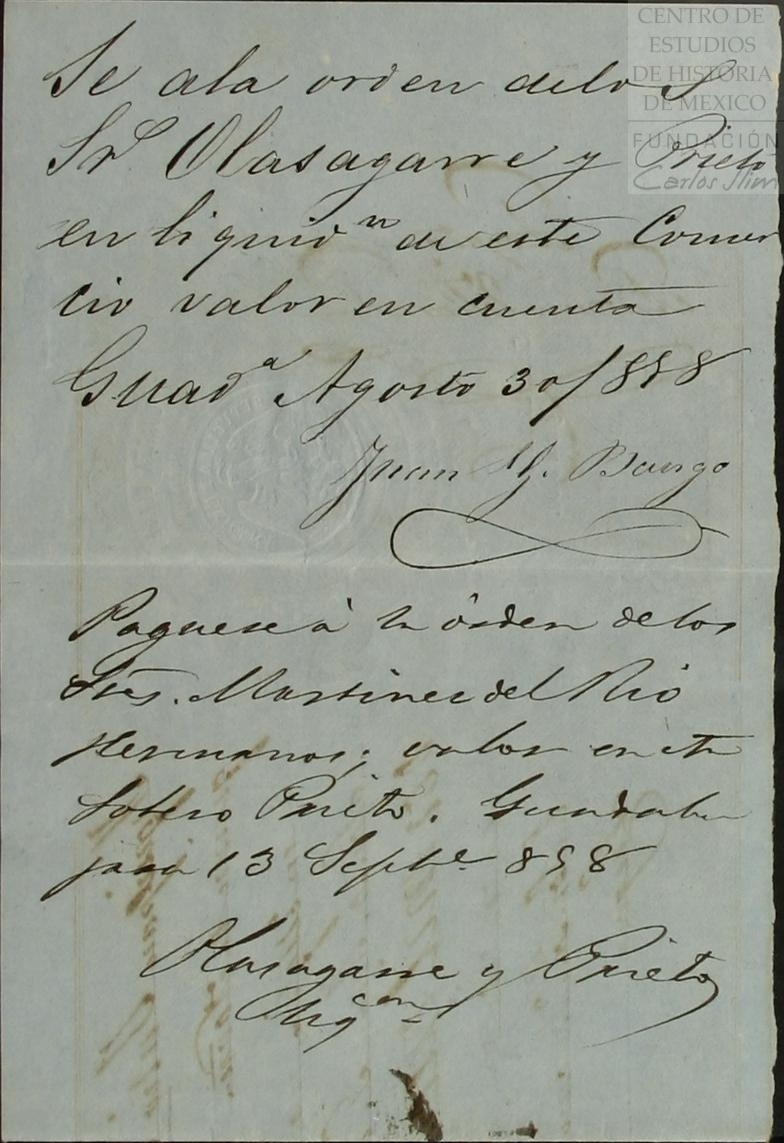 CENTRO DE
ESTUDIOS
DE HISTORIA
DE MEXICO
FUNDACIÓN
Carlos Slim
Se ala orden delos S
Srs Olasagarre y Prieto
en liquidn de este Comer
cio valor en cuenta
Guada Agosto 30/858
Juan Y. Bargo
Paguese à la órden de los
Sres. Martinez del Rio
Hermanos; valor en cta
Sotero Prieto. Guadala
jara 13 Septe. 858
Olasagarre y Prieto